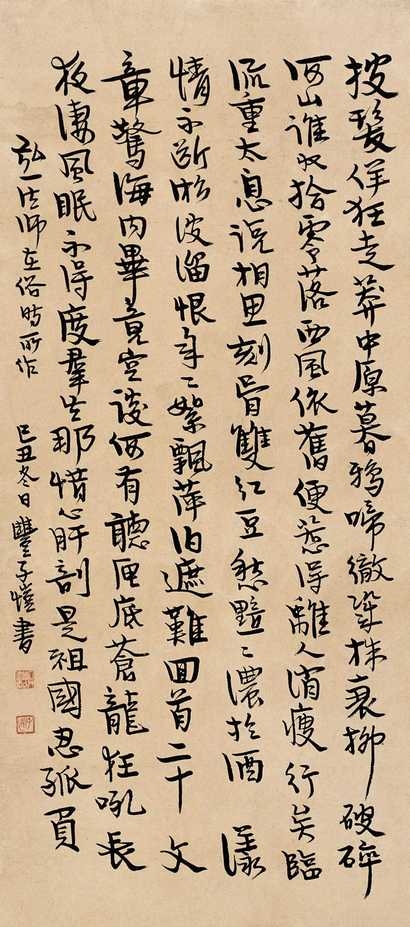 披髮佯狂走莽中原暮鴉啼徹幾株衰柳破碎
河山誰收拾零落西風依舊便惹得離人消瘦行矣臨
流重太息說相思刻骨雙紅豆愁黯〻濃於酒 漾
情不斷淞波溜恨年〻絮飄萍泊遮難回首二十文
章驚海內畢竟空談何有聽匣底蒼龍狂吼長
夜淒風眠不得度羣生那惜心肝剖是祖國忍孤負
弘一法師在俗時所作 己丑冬日豐子愷書